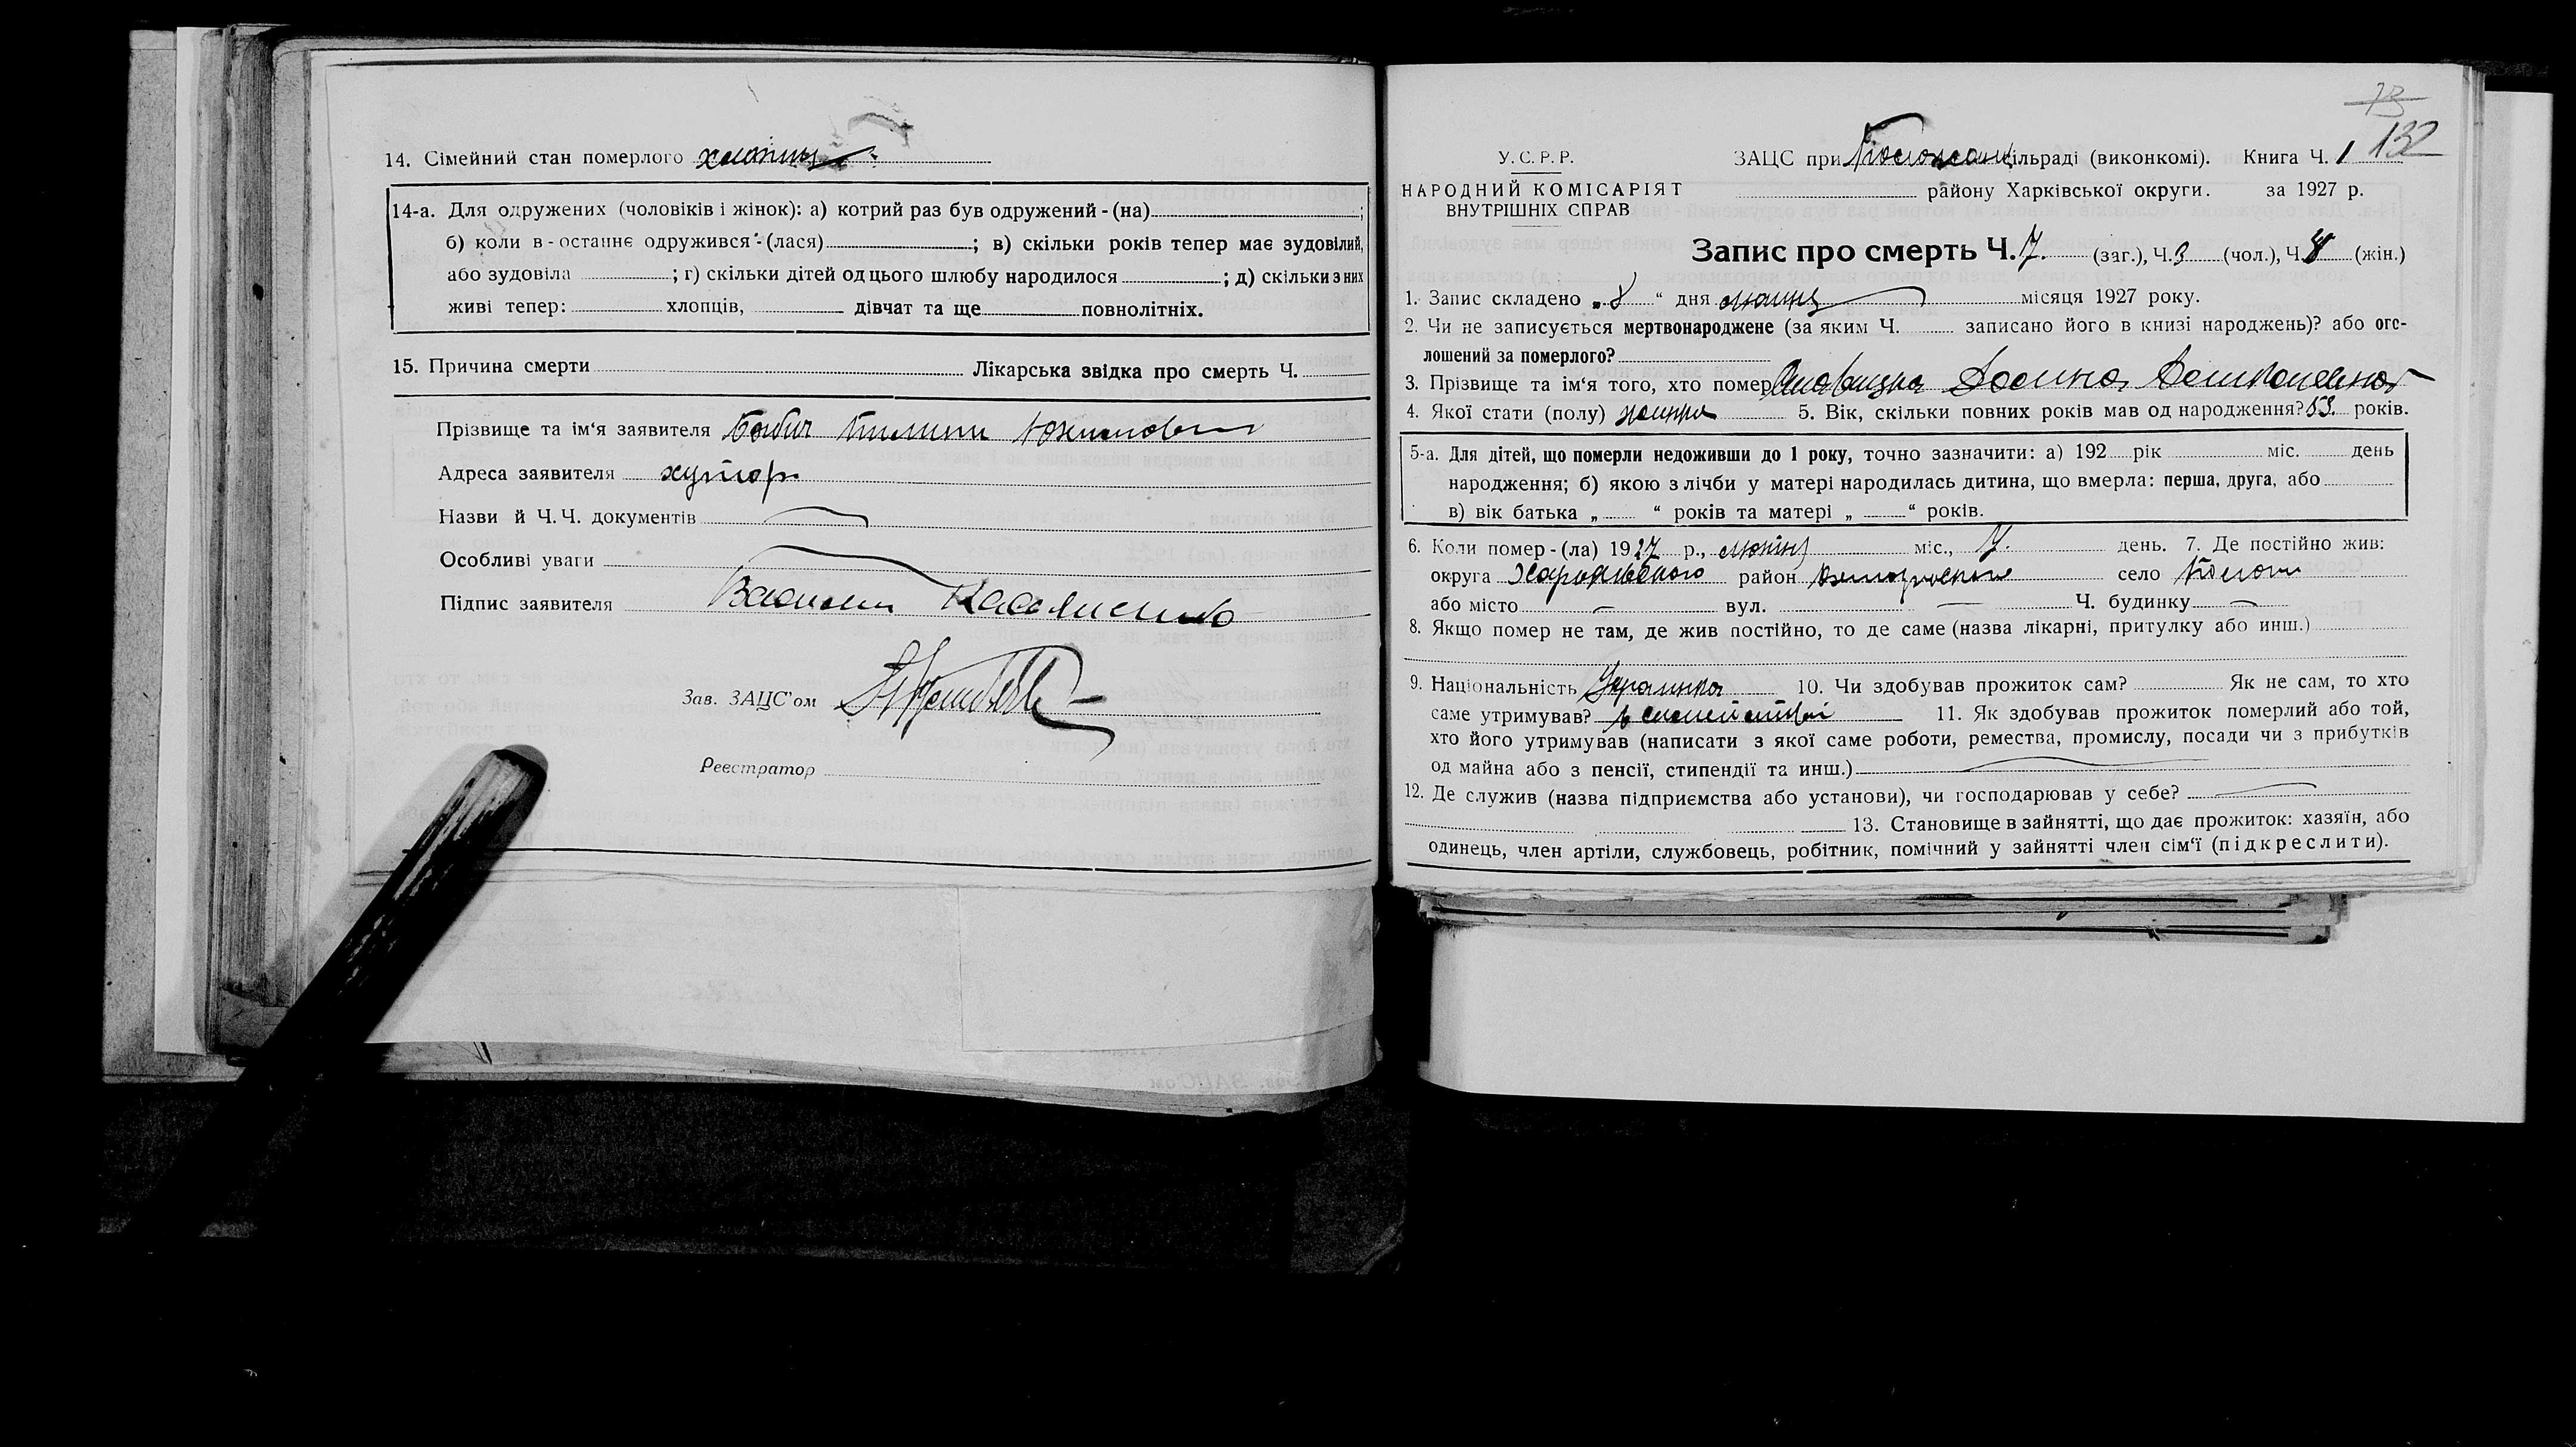 14. Сімейний стан померлого
14-а. Для одружених (чоловіків і жінок): а) котрий раз був одружений - (на) ;
б) коли в - останнє одружився - (лася) ; в) скільки років тепер має зудовілий,
або зудовіла ; г) скільки дітей од цього шлюбу народилося ; д) скільки з них
живі тепер: хлопців, дівчат та ще повнолітніх.
15. Причина смерти Лікарська звідка про смерть Ч.
Прізвище та ім'я заявителя
Адреса заявителя хутор.
Назви й Ч.Ч. документів
Особливі уваги
Підпис заявителя
Зав. ЗАЦС'ом
Реєстратор
73
132
У.С.Р.Р. ЗАЦС при сільраді (виконкомі). Книга Ч. 1
НАРОДНИЙ КОМІСАРІЯТ району Харківської округи. за 1927 р.
ВНУТРІШНІХ СПРАВ
Запис про смерть Ч. 7. (заг.), Ч. 3 (чол.), Ч. 4 (жін.)
1. Запис складено „ 8 “ дня місяця 1927 року.
2. Чи не записується мертвонароджене (за яким Ч. записано його в книзі народжень)? або ого-
лошений за померлого?
3. Прізвище та ім'я того, хто помер
4. Якої стати (полу) 5. Вік, скільки повних років мав од народження? 53. років.
5-а. Для дітей, що померли недоживши до 1 року, точно зазначити: а) 192 рік міс. день
народження; б) якою з лічби у матері народилась дитина, що вмерла: перша, друга, або
в) вік батька „ “ років та матері „ “ років.
6. Коли помер - (ла) 1927 р., міс., 7. день. 7. Де постійно жив:
округа Харківського район село
або місто — вул. — Ч. будинку —
8. Якщо помер не там, де жив постійно, то де саме (назва лікарні, притулку або инш.)
9. Національність Украинка 10. Чи здобував прожиток сам? Як не сам, то хто
саме утримував? 11. Як здобував прожиток померлий або той,
хто його утримував (написати з якої саме роботи, ремества, промислу, посади чи з прибутків
од майна або з пенсії, стипендії та инш.)
12. Де служив (назва підприємства або установи), чи господарював у себе?
13. Становище в зайнятті, що дає прожиток: хазяїн, або
одинець, член артіли, службовець, робітник, помічний у зайнятті член сім'ї (підкреслити).